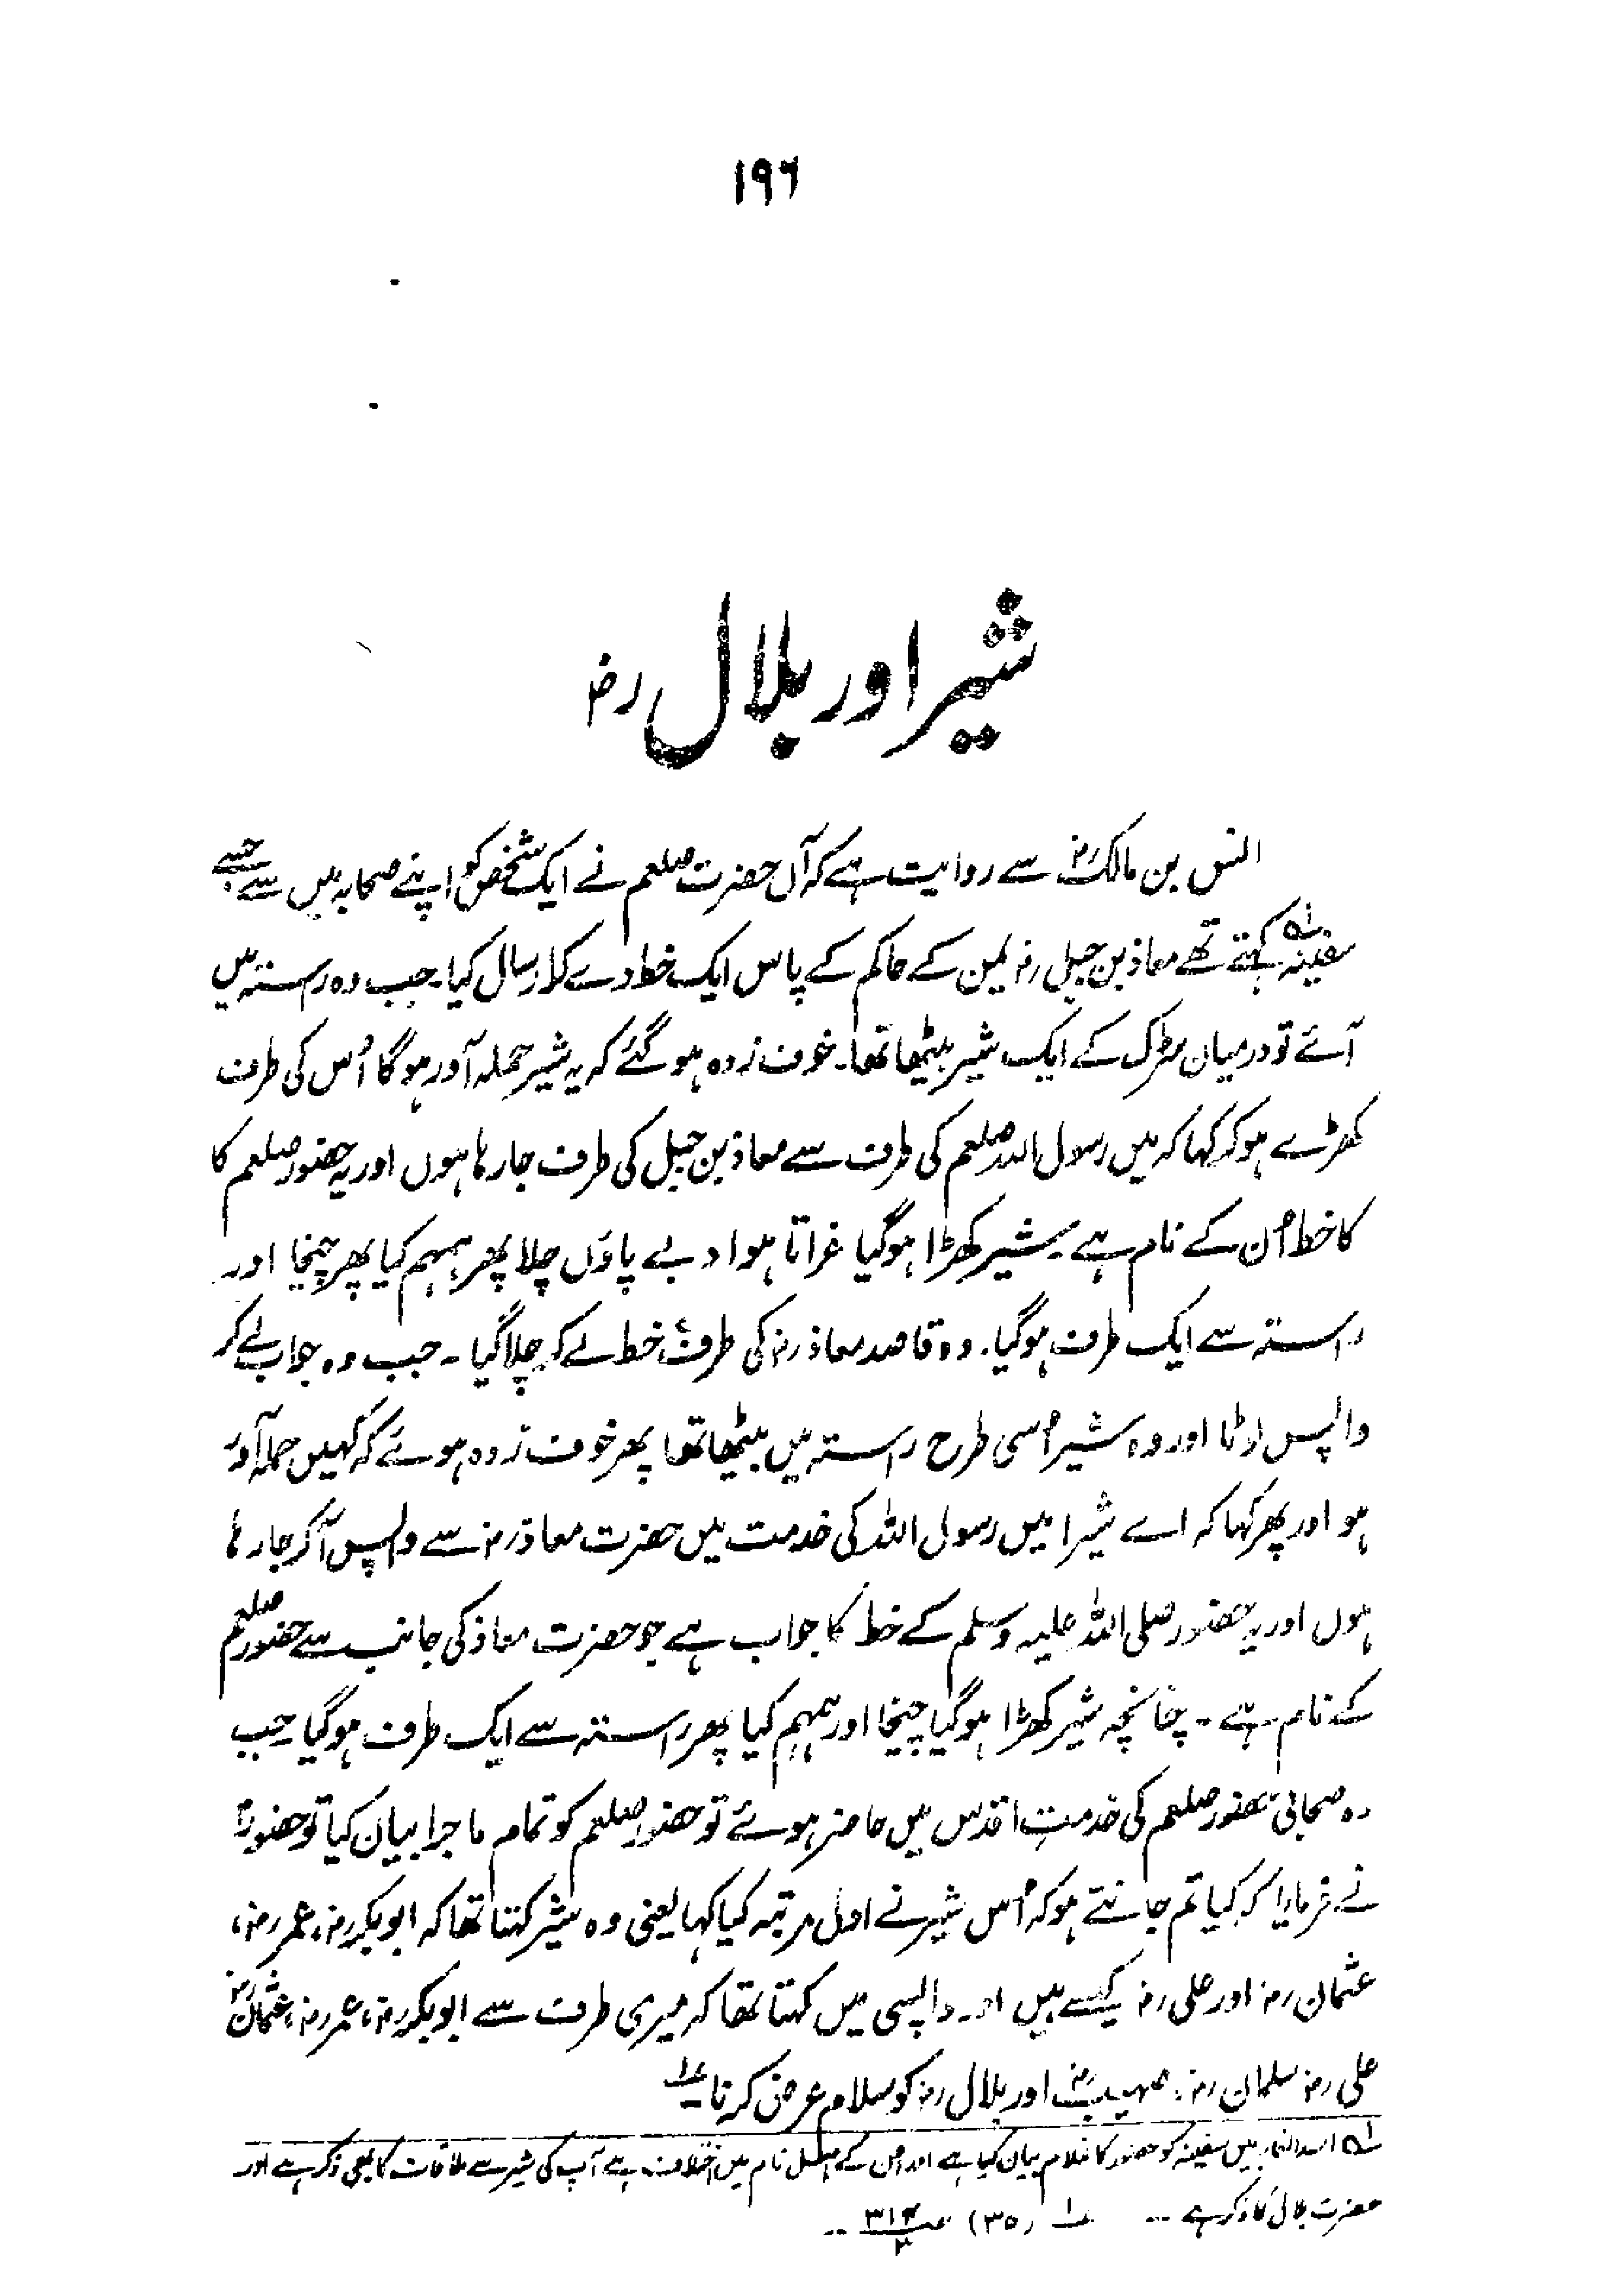 ۱۹۶
شیر اور بلال رض
انس بن مالکؓ سے روایت ہے کہ آں حضرت صلعم نے ایک شخص کو اپنے صحابہ میں سے جسے
سفینہ ۱؎ کہتے تھے معاذ بن جبل رضہ یمن کے حاکم کے پاس ایک خط دے کر ارسال کیا۔ جب وہ رستہ میں
آئے تو درمیان سڑک کے ایک شیر بیٹھا تھا۔ خوف زدہ ہو گئے کہ یہ شیر حملہ آور ہوگا اُس کی طرف
کھڑے ہو کر کہا کہ میں رسول اللہ صلعم کی طرف سے معاذ بن جبل کی طرف جا رہا ہوں اور یہ حضور صلعم کا
کا خط اُن کے نام ہے۔ شیر کھڑا ہوگیا غراتا ہوا دبے پاؤں چلا پھر ہمہم کیا پھر چیخا اور
راستہ سے ایک طرف ہوگیا۔ وہ قاصد معاذ رضہ کی طرف خط لے کر چلا گیا۔ جب وہ جواب لے کر
واپس لوٹا اور وہ شیر اُسی طرح راستہ میں بیٹھا تھا پھر خوف زدہ ہوئے کہ کہیں حملہ آور
ہو اور پھر کہا کہ اے شیر! میں رسول اللہ کی خدمت میں حضرت معاذ رضہ سے واپس آکر جا رہا
ہوں اور یہ حضور صلی اللہ علیہ وسلم کے خط کا جواب ہے جو حضرت معاذ کی جانب سے حضور صلعم
کے نام ہے۔ چنانچہ شیر کھڑا ہوگیا چیخا اور ہمہم کیا پھر راستہ سے ایک طرف ہوگیا۔ جب
وہ صحابی حضور صلعم کی خدمتِ اقدس میں حاضر ہوئے تو حضور صلعم کو تمام ماجرا بیان کیا تو حضورؐ
نے فرمایا کہ کیا تم جانتے ہو کہ اُس شیر نے اول مرتبہ کیا کہا یعنی وہ شیر کہتا تھا کہ ابوبکر رضہ، عمر رضہ،
عثمان رضہ اور علی رضہ کیسے ہیں اور واپسی میں کہتا تھا کہ میری طرف سے ابوبکر رضہ، عمر رضہ، عثمانؓ
علی رضہ سلمان رضہ، صہیبؓ اور بلال رضہ کو سلام عرض کرنا۔
۱؎ اسد الغابہ میں سفینہ کو حضور کا غلام بیان کیا ہے اور ان کے اصل نام میں اختلاف ہے آپ کی شیر سے ملاقات کا بھی ذکر ہے اور
حضرت بلال کا ذکر ہے ۔۔ ۱؎ (۳۵) ص ۳۱۴/۲ ۔۔